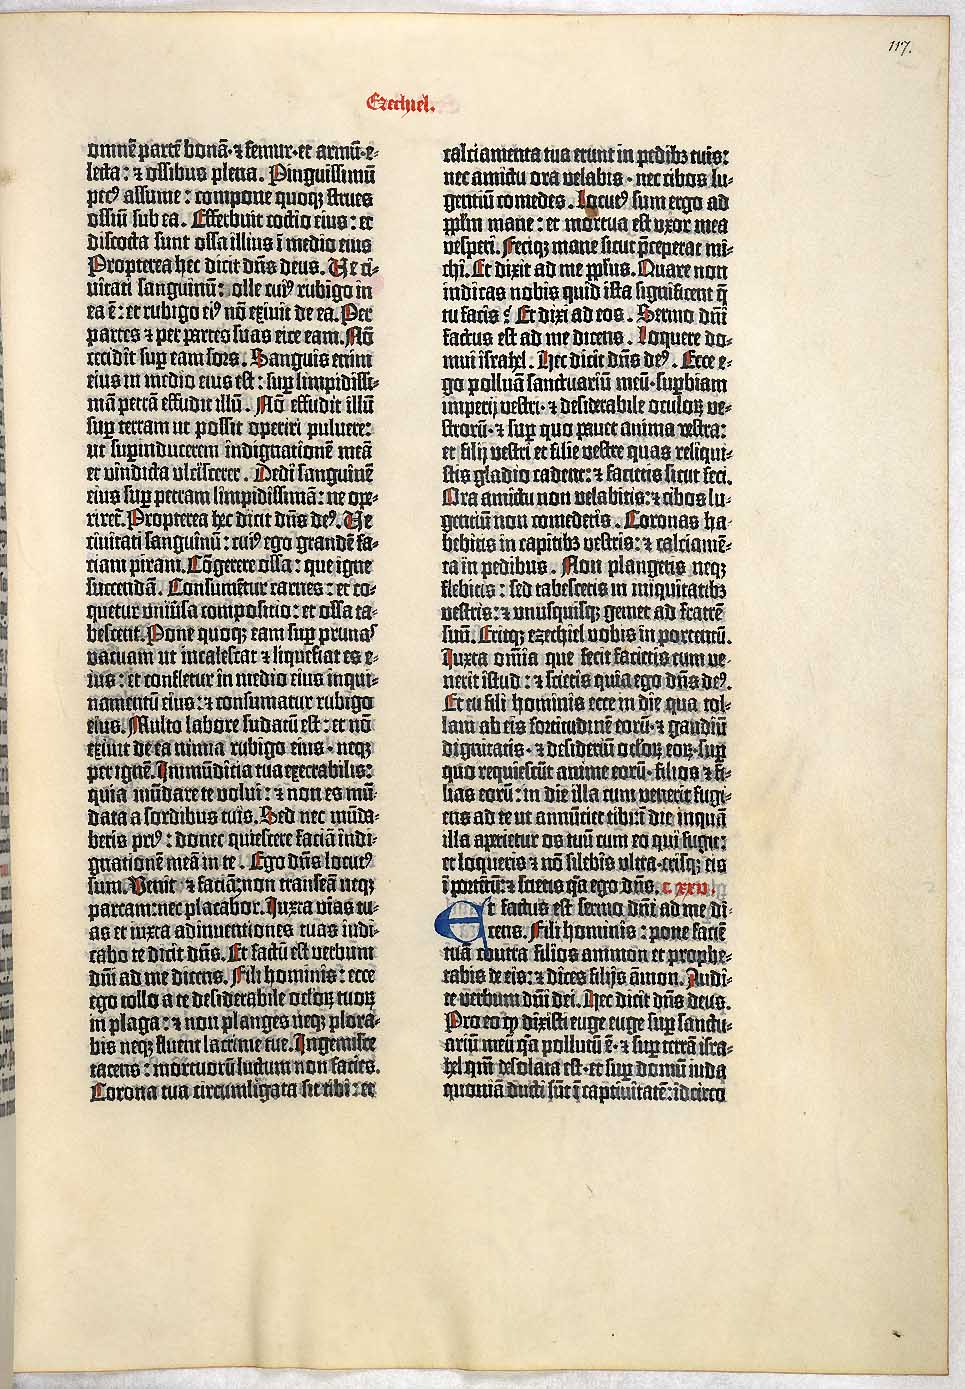 117.
Ezechiel.
omnē partē bonā·⁊ femur·et armū·e-
lecta: ⁊ ossibus plena. Pinguissimū
pecꝰ assume: compone quoqꝫ strues
ossiū sub ea. Efferbuit coctio eius: et
discocta sunt ossa illius ī medio eius
Propterea hec dicit dñs deus. Ve ci-
uitati sanguinū: olle cuiꝰ rubigo in
ea ē: et rubigo eiꝰ nō exiuit de ea. Per
partes ⁊ per partes suas eice eam. Nō
cecidit suꝑ eam sors. Sanguis enim
eius in medio eius est: suꝑ limpidissi-
mā petrā effudit illū. Nō effudit illū
suꝑ terram ut possit operiri puluere:
ut suꝑinducerem indignationē meā
et vindicta ulciscerer. Dedi sanguinē
eius suꝑ petram limpidissimā: ne ope-
riret̄. Propterea hec dicit dñs deꝰ. Ve
ciuitati sanguinū: cuiꝰ ego grandē fa-
ciam piram. Cōgere ossa: que igne
succendā. Consumētur carnes: et co-
quetur uniūsa compositio: et ossa ta-
bescent. Pone quoqꝫ eam suꝑ prunas
vacuam ut incalescat ⁊ liquefiat es e-
ius: et confletur in medio eius inqui-
namentū eius: ⁊ consumatur rubigo
eius. Multo labore sudatū est: et nō
exiuit de ea nimia rubigo eius·neqꝫ
per ignē. Inmūdicia tua execrabilis:
quia mūdare te volui: ⁊ non es mū-
data a sordibus tuis. Sed nec mūda-
beris priꝰ: donec quiescere faciā indi-
gnationē meā in te. Ego dñs locutꝰ
sum. Veniet ⁊ faciā: non transeā neqꝫ
parcam: nec placabor. Juxta vias tu-
as et iuxta adinuentiones tuas iudi-
cabo te dicit dñs. Et factū est verbum
dñi ad me dicens. Fili hominis: ecce
ego tollo a te desiderabile oculoꝝ tuoꝝ
in plaga: ⁊ non planges neqꝫ plora-
bis neqꝫ fluent lacrime tue. Ingemisce
tacens: mortuorū luctum non facies.
Corona tua circumligata sit tibi: et
calciamenta tua erunt in pedibꝫ tuis:
nec amictu ora velabis·nec cibos lu-
gentiū comedes. Locutꝰ sum ergo ad
pplm mane: et mortua est vxor mea
vesperi. Feciqꝫ mane sicut p̄ceperat mi-
chi. Et dixit ad me ppłus. Quare non
indicas nobis quid ista significent q̄
tu facis? Et dixi ad eos. Sermo dñi
factus est ad me dicens. Loquere do-
mui israhel: Hec dicit dñs deꝰ. Ecce e-
go polluā sanctuariū meū·suꝑbiam
imperij vestri·⁊ desiderabile oculoꝝ ve-
strorū·⁊ suꝑ quo pauet anima vestra:
et filij vestri et filie vestre quas reliqui-
stis gladio cadent: ⁊ facietis sicut feci.
Ora amictu non velabitis: ⁊ cibos lu-
gentiū non comedetis. Coronas ha-
bebitis in capitibꝫ vestris: ⁊ calciamē-
ta in pedibus. Non plangetis neqꝫ
flebitis: sed tabescetis in iniquitatibꝫ
vestris: ⁊ unusquisqꝫ gemet ad fratrē
suū. Eritqꝫ ezechiel vobis in portentū.
Juxta omīa que fecit facietis cum ve-
nerit istud: ⁊ scietis quia ego dñs deꝰ.
Et tu fili hominis ecce in die qua tol-
lam ab eis fortitudinē eorū·⁊ gaudiū
dignitatis·⁊ desideriū ocłoꝝ eoꝝ·suꝑ
quo requiescūt anime eorū·filios ⁊ fi-
lias eorū: in die illa cum venerit fugi-
ens ad te ut annūciet tibi: ī die inquā
illa aperietur os tuū cum eo qui fugit:
et loqueris ⁊ nō silebis ultra·erisqꝫ eis
ī portētū: ⁊ scietis qa ego dñs. c. xxv.
Et factus est sermo dñi ad me di-
cens. Fili hominis: pone faciē
tuā contra filios ammon et prophe-
tabis de eis: ⁊ dices filijs āmon. Audi-
te verbum dñi dei. Hec dicit dñs deus.
Pro eo ꝙ dixisti euge euge suꝑ sanctu-
ariū meū qa pollutū ē·⁊ suꝑ terrā isra-
hel qm̄ desolata est·et suꝑ domū iuda
quoniā ducti sūt ī captiuitatē: idcirco